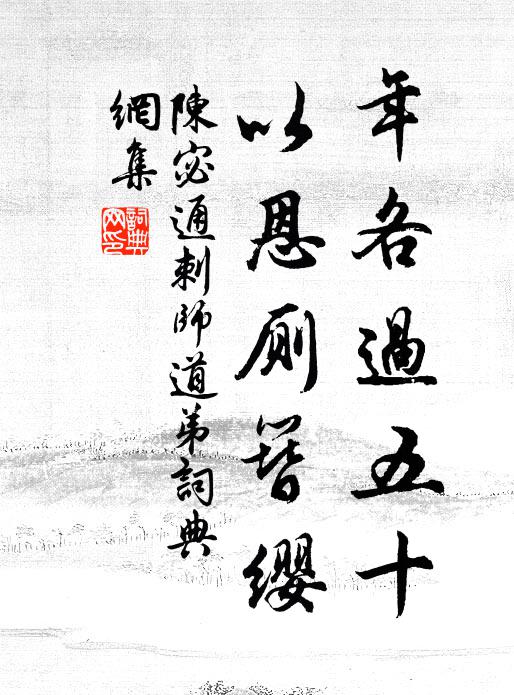 年各過五十
以恩厕簪纓
陳宓通剌師道弟詞典
網集
詞典
网印